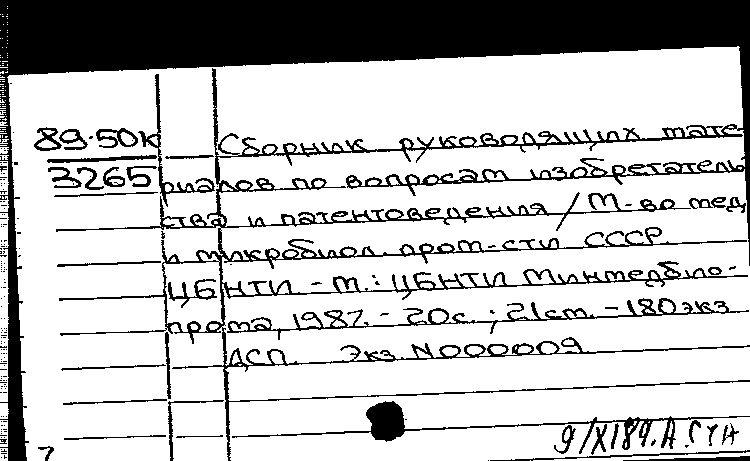 89-50к
3265
Сборник руководящих мате-
риалов по вопросам изобретатель
ства и патентоведения / М-во мед.
и микробиол. пром-сти СССР.
ЦБНТИ - М.: ЦБНТИ Минмедбио-
прома, 1987. - 20с. ; 21см. - 180 экз
ДСП. Экз. N000009
9/XI89.А.
7